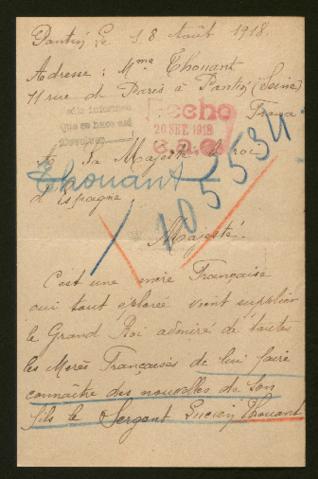 Pantin Le 18 Août 1918.
Adresse : Mme Thouant
11 rue de Paris à Pantin (Seine)
France
se le informa
que se hace esa
Fecho
20 SET. 1918
105534
Sa Majesté le roi
Thouant
d'Espagne
Majesté.
C'est une mère Française
qui tout éplorée vient supplier
le Grand Roi admiré de toutes
les Merès Françaises de lui faire
connaître des nouvelles de son
fils le Sergent Lucien Thouant